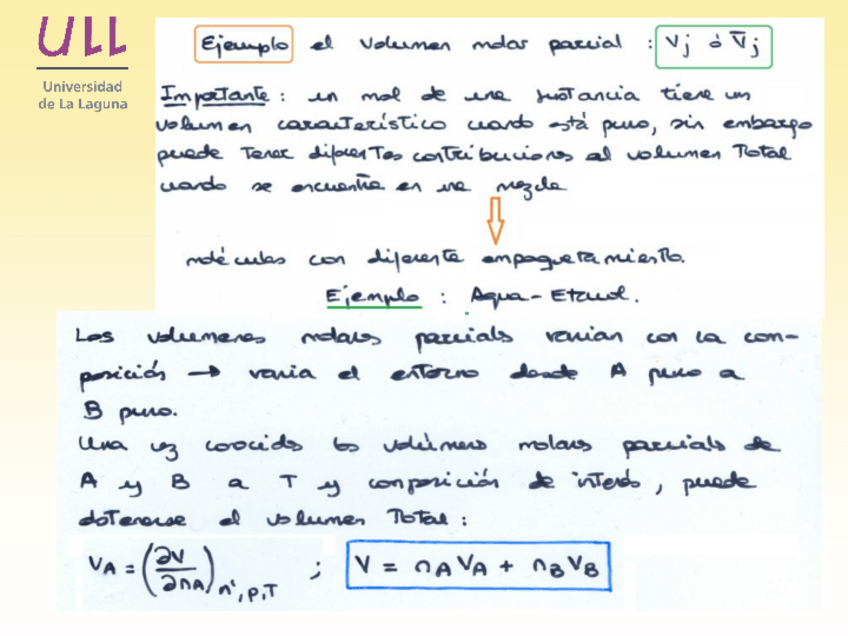 ULL
Universidad
de La Laguna
Ejemplo el volumen molar parcial : Vj ó V̄j
Importante : un mol de una sustancia tiene un
volumen característico cuando está puro, sin embargo
puede tener diferentes contribuciones al volumen total
cuando se encuentra en una mezcla
⇩
moléculas con diferente empaquetamiento.
Ejemplo : Agua - Etanol.
Los volúmenes molares parciales varian con la com-
posición → varia el entorno desde A puro a
B puro.
Una vez conocidos los volúmenes molares parciales de
A y B a T y composición de interés, puede
obtenerse el volumen total :
VA = (∂V/∂nA)n',P,T ; V = nAVA + nBVB